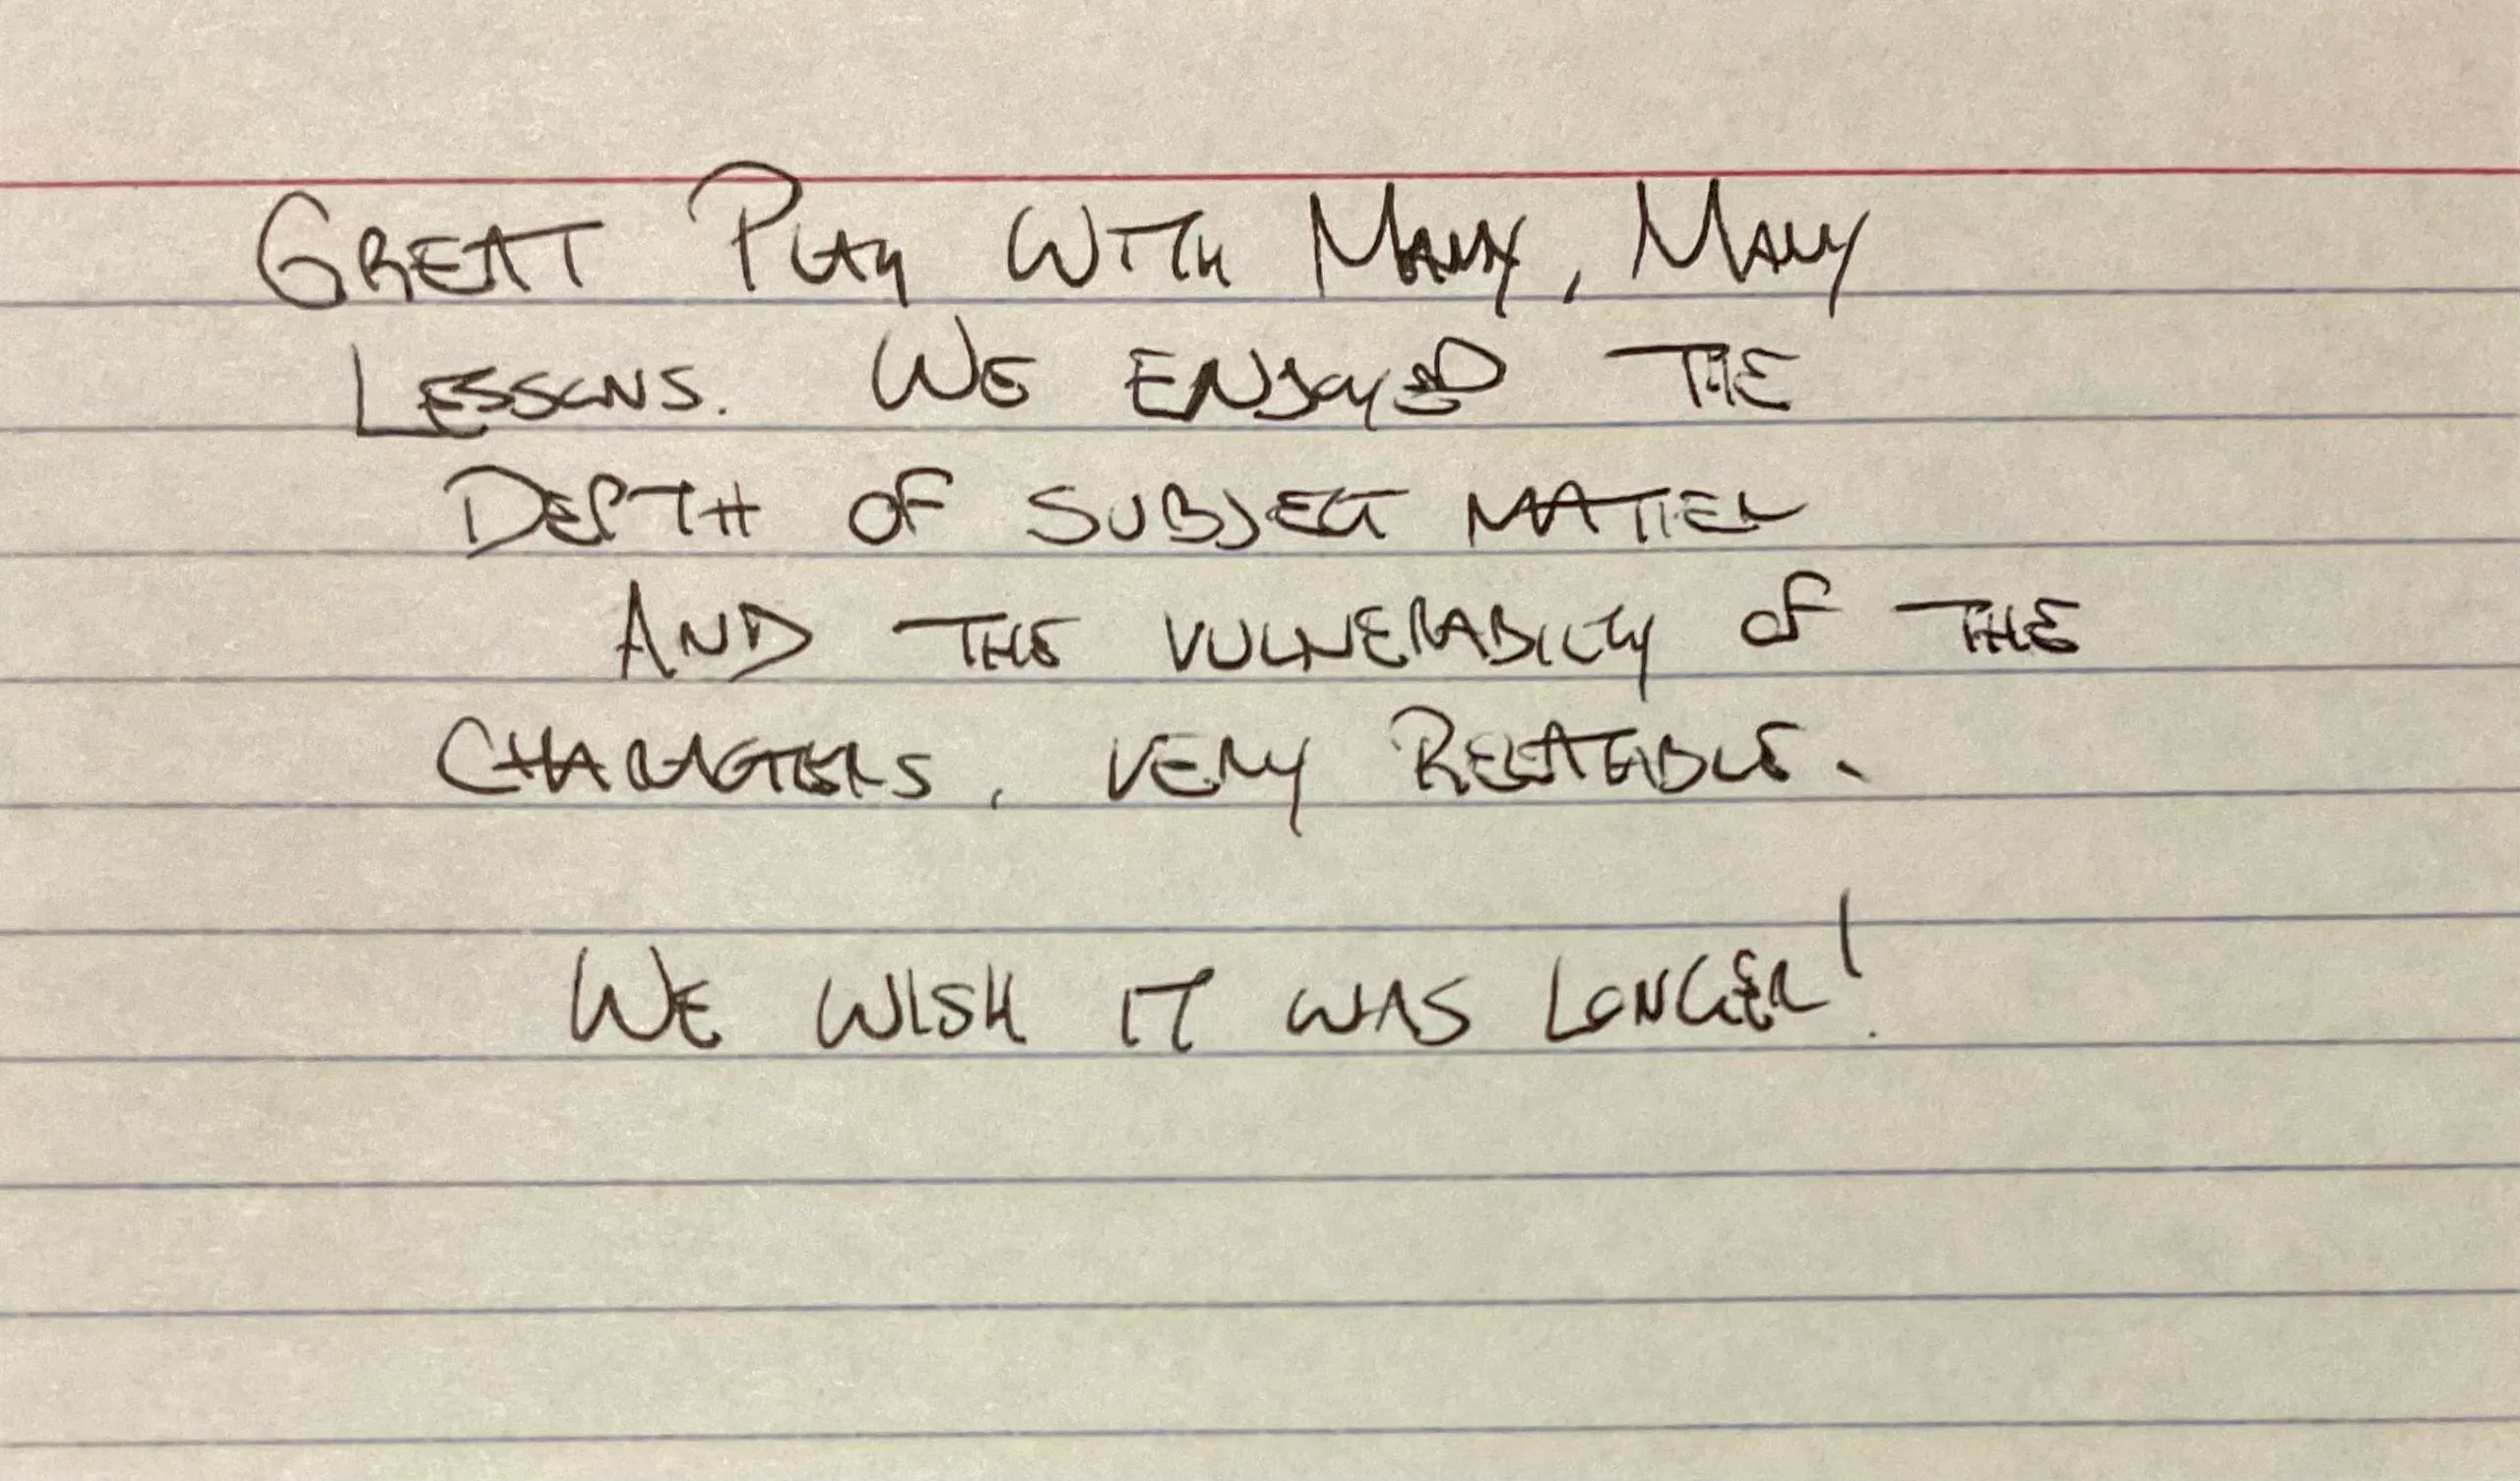 GREAT PLAY WITH MANY, MANY
LESSONS. WE ENJOYED THE
DEPTH OF SUBJECT MATTER
AND THE VULNERABILITY OF THE
CHARACTERS, VERY RELATABLE.
WE WISH IT WAS LONGER!